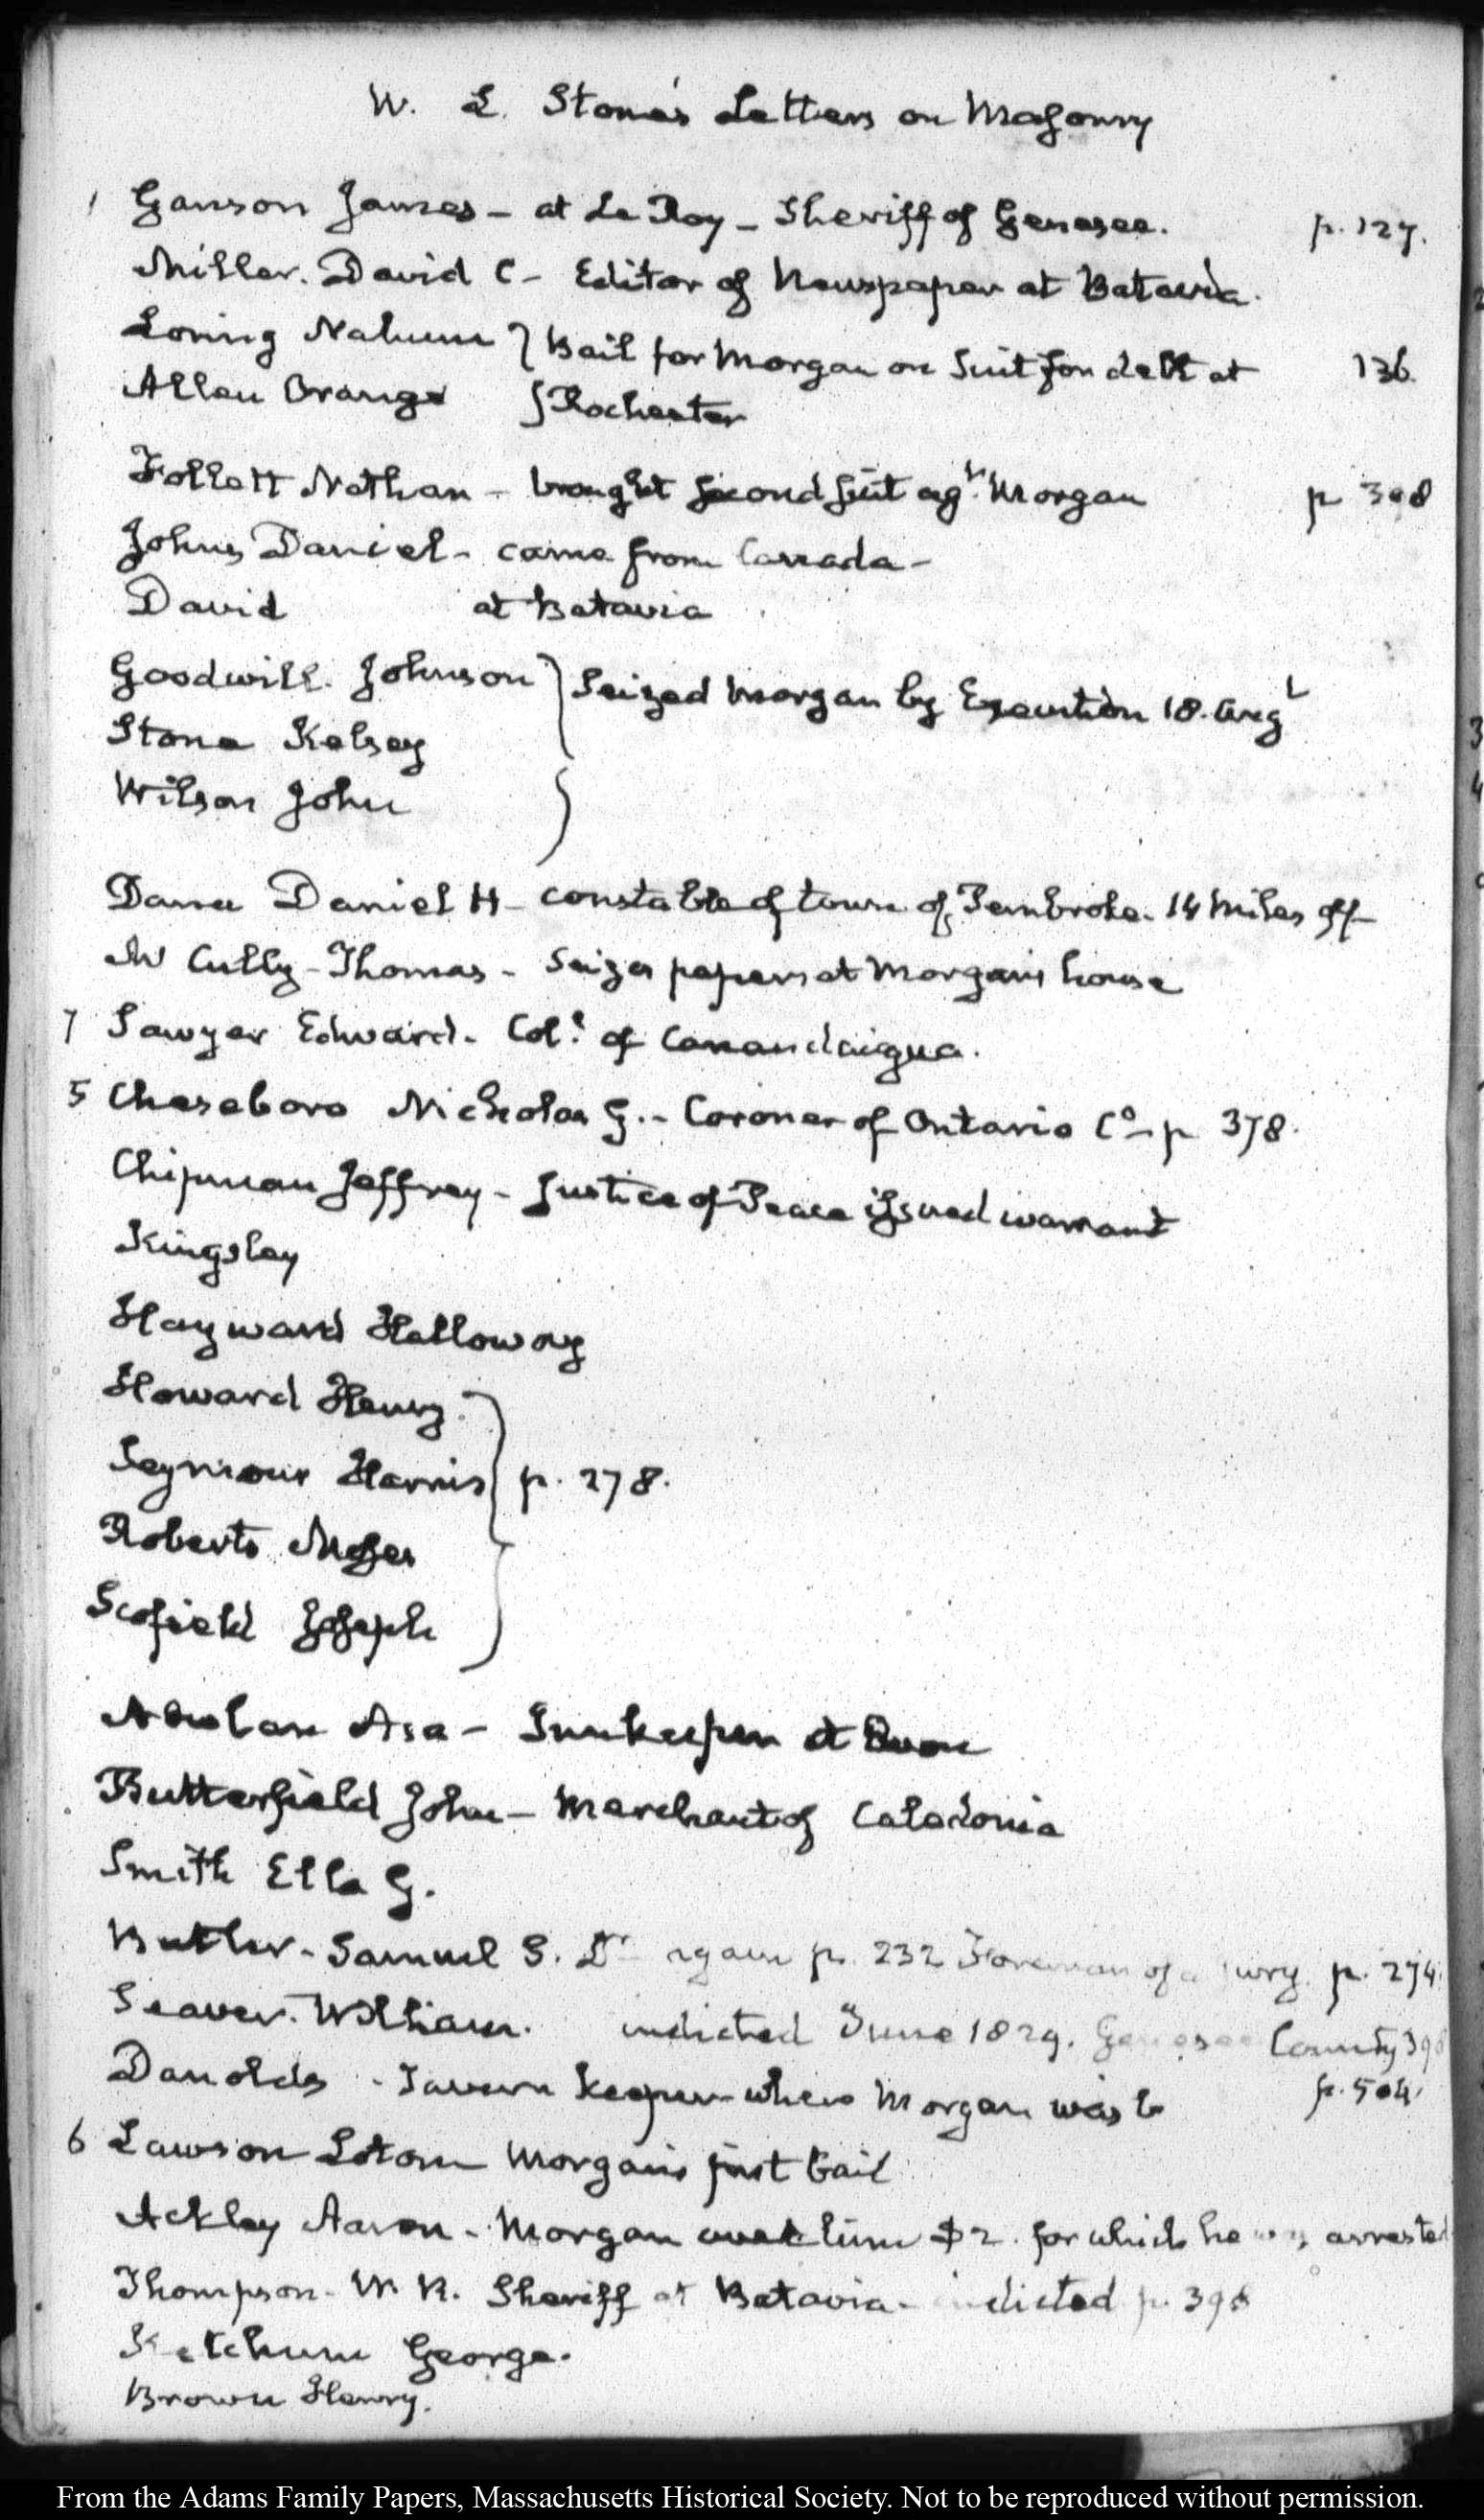 W. L. Stone's Letters on Masonry
1 Ganson James - at Le Roy - Sheriff of Genesee. p. 127.
Miller. David C - Editor of Newspaper at Batavia.
Loring Nahum } Bail for Morgan on Suit for debt at 136.
Allen Orange } Rochester
Follett Nathan - brought second suit agt. Morgan p 398
Johns Daniel - came from Canada -
David at Batavia
Goodwill. Johnson } Seized Morgan by Execution 18. Augt
Stone Kelsey
Wilson John }
Dana Daniel H - constable of town of Pembroke. 14 miles off
Mc Cully - Thomas - Seizes papers at Morgan's house
7 Sawyer Edward. Coll. of Canandaigua.
5 Cheseboro Nicholas G. - Coroner of Ontario Co - p 378.
Chipman Jeffrey - Justice of Peace issued warrant
Kingsley
Hayward Halloway
Howard Henry. }
Seymour Harris } p. 278.
Roberts Moses }
Scofield Joseph }
Asa - Innkeeper at Avon
Butterfield John - Merchant of Caledonia
Smith Ella G.
Butler - Samuel S. Dr again p. 232 Foreman of a jury. p. 274.
Seaver. William. indicted June 1829. Genesee County 398
Danolds - Tavern keeper where Morgan was p. 504.
6 Lawson Lotom Morgan's first bail
Ackley Aaron - Morgan owed him $2. for which he was arrested
Thompson - W. R. Sheriff at Batavia - indicted p. 398
Ketchum George.
Brown Henry.
From the Adams Family Papers, Massachusetts Historical Society. Not to be reproduced without permission.